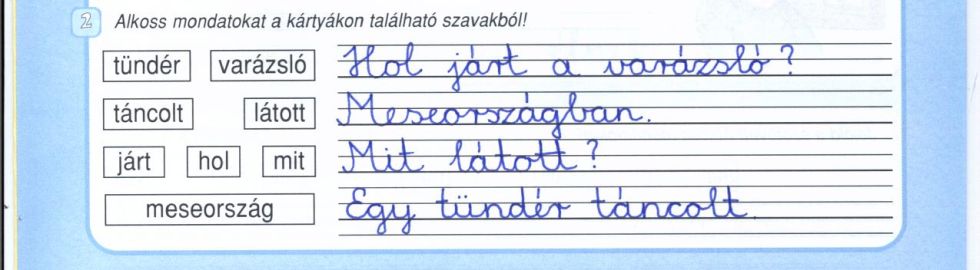 2 Alkoss mondatokat a kártyákon található szavakból!
tündér varázsló Hol járt a varázsló?
táncolt látott Meseországban.
járt hol mit Mit látott?
meseország Egy tündér táncolt.